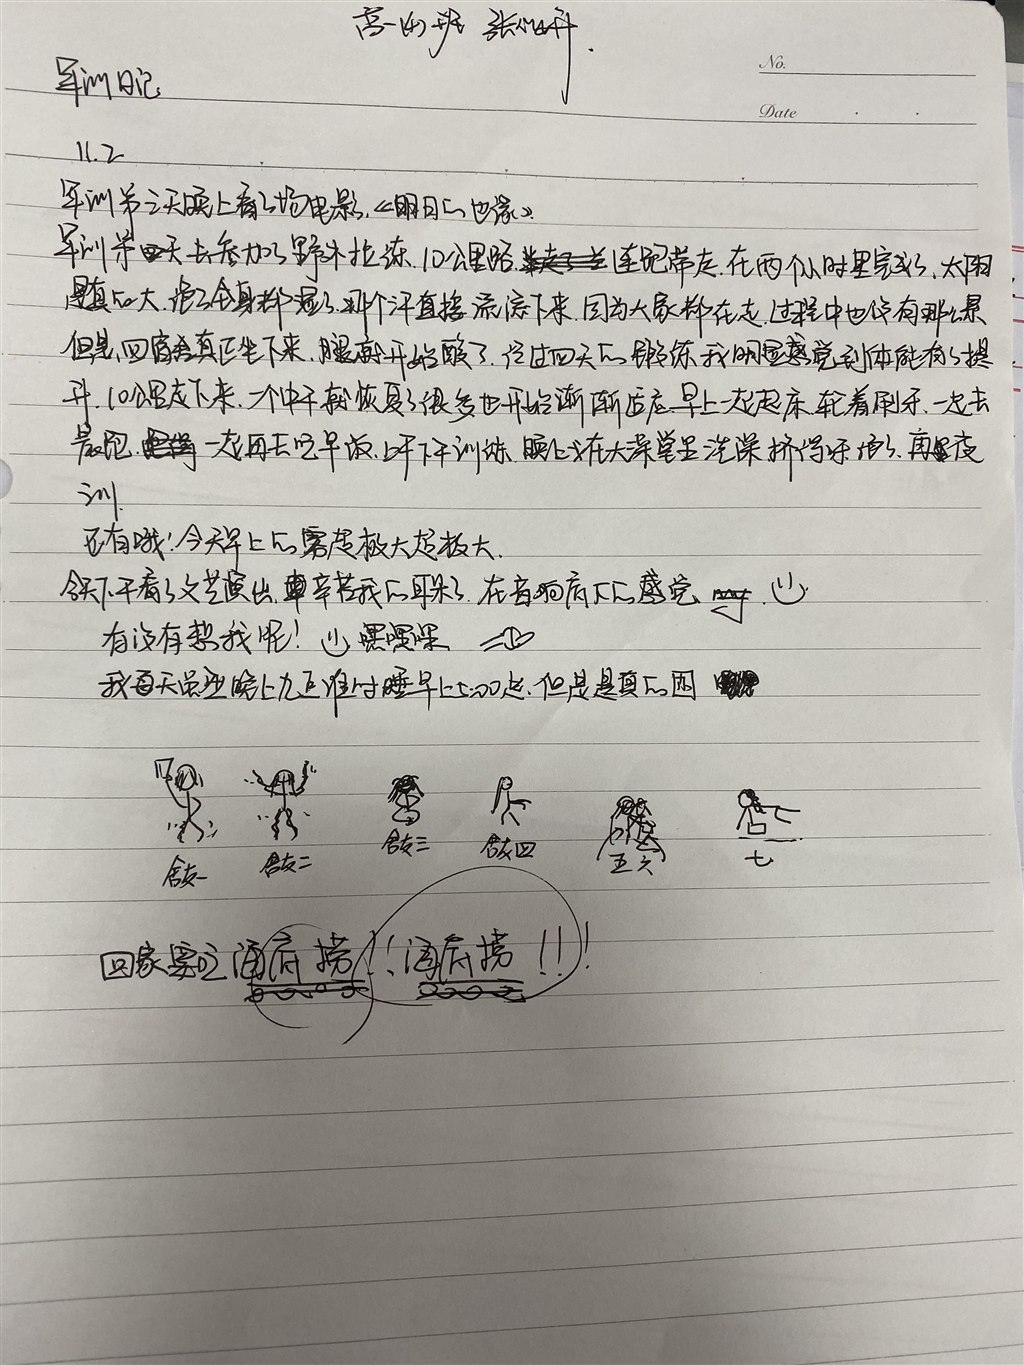 高一(4)班 张
No.
军训日记
Date
11.2
军训第三天晚上看了场电影《明日的边缘》
军训第四天去参加了野外拉练.10公里路.连跑带走.在两个小时里完成了.太阳
是真的大.跑了全身都湿了.那个汗直接流淌下来.因为大家都在走.过程中也没有那么累
但是.回宿舍真正坐下来.腿就开始酸了.经过四天的锻炼.我明显感觉到体能有了提
升.10公里走下来.一个中午就恢复了很多也开始渐渐适应.早上一起起床.轮着刷牙.一起去
晨跑.一起再去吃早饭.上午下午训练.晚上在大澡堂里洗澡挤得不行了.再夜
训.
还有哦!今天早上的雾超极大超极大.
今天下午看了文艺演出.辛苦我的耳朵了.在音响底下的感觉
有没有想我呢! 嘿嘿嘿
我每天虽然晚上九点准时睡早上6:00起.但是是真的困
舍友一 舍友二 舍友三 舍友四 五六 七
回家要吃海底捞!!海底捞!!!